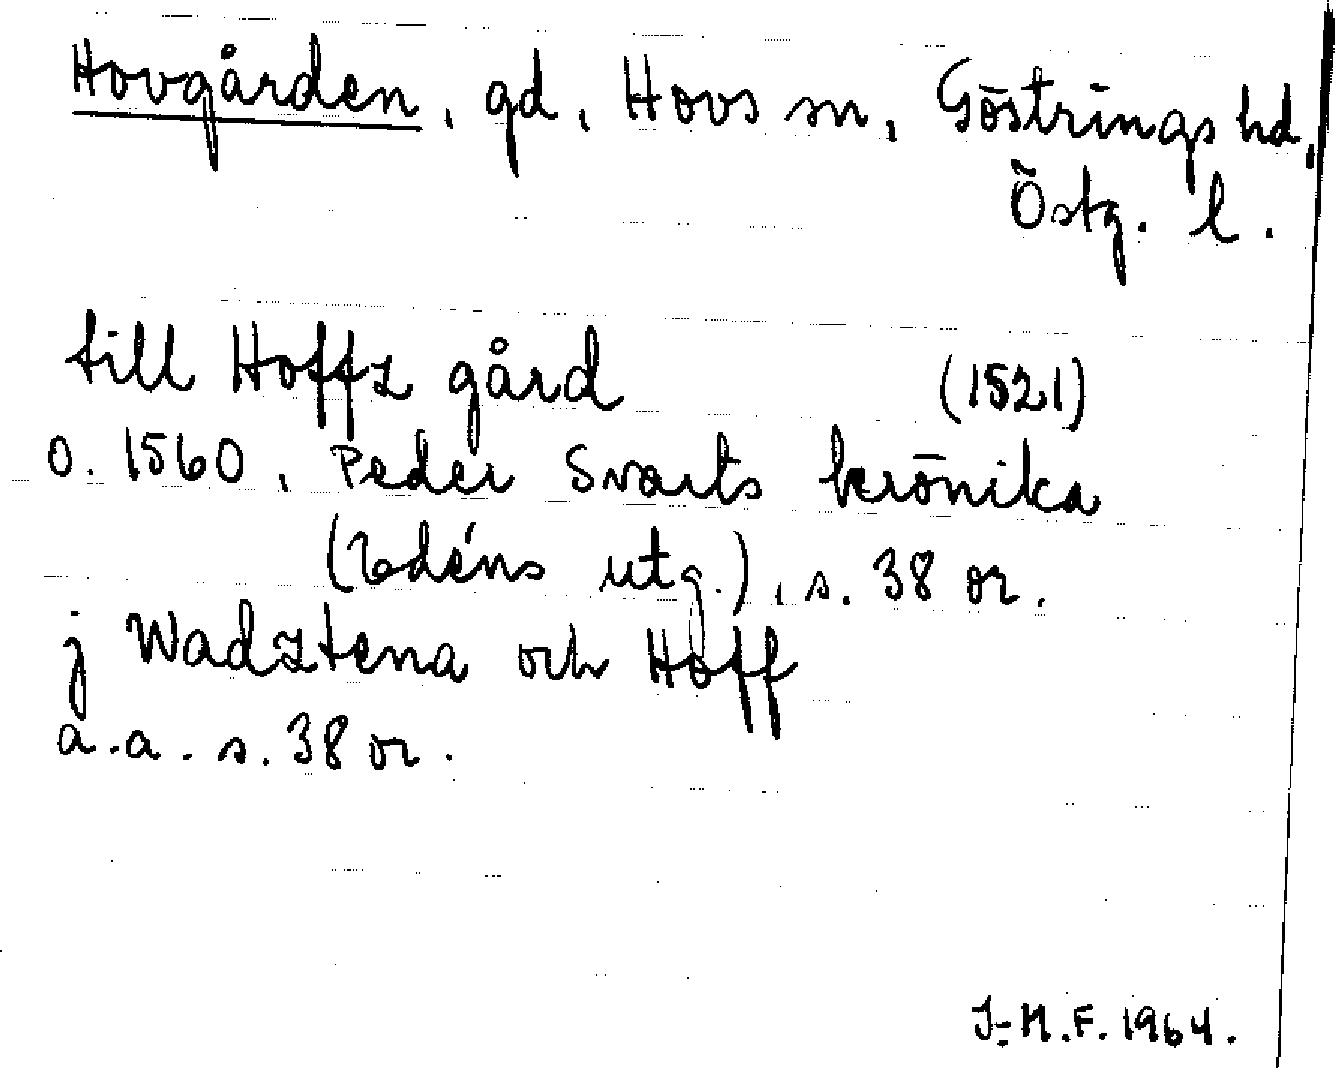 Hovgården, gd, Hovs sn, Göstrings hd,
Östg. l.
till Hoffz gård (1521)
o. 1560, Peder Svarts krönika
(Edéns utg.), s. 38 or.
j Wadztena och Hoff
a.a. s. 38 or.
J-M.F. 1964.